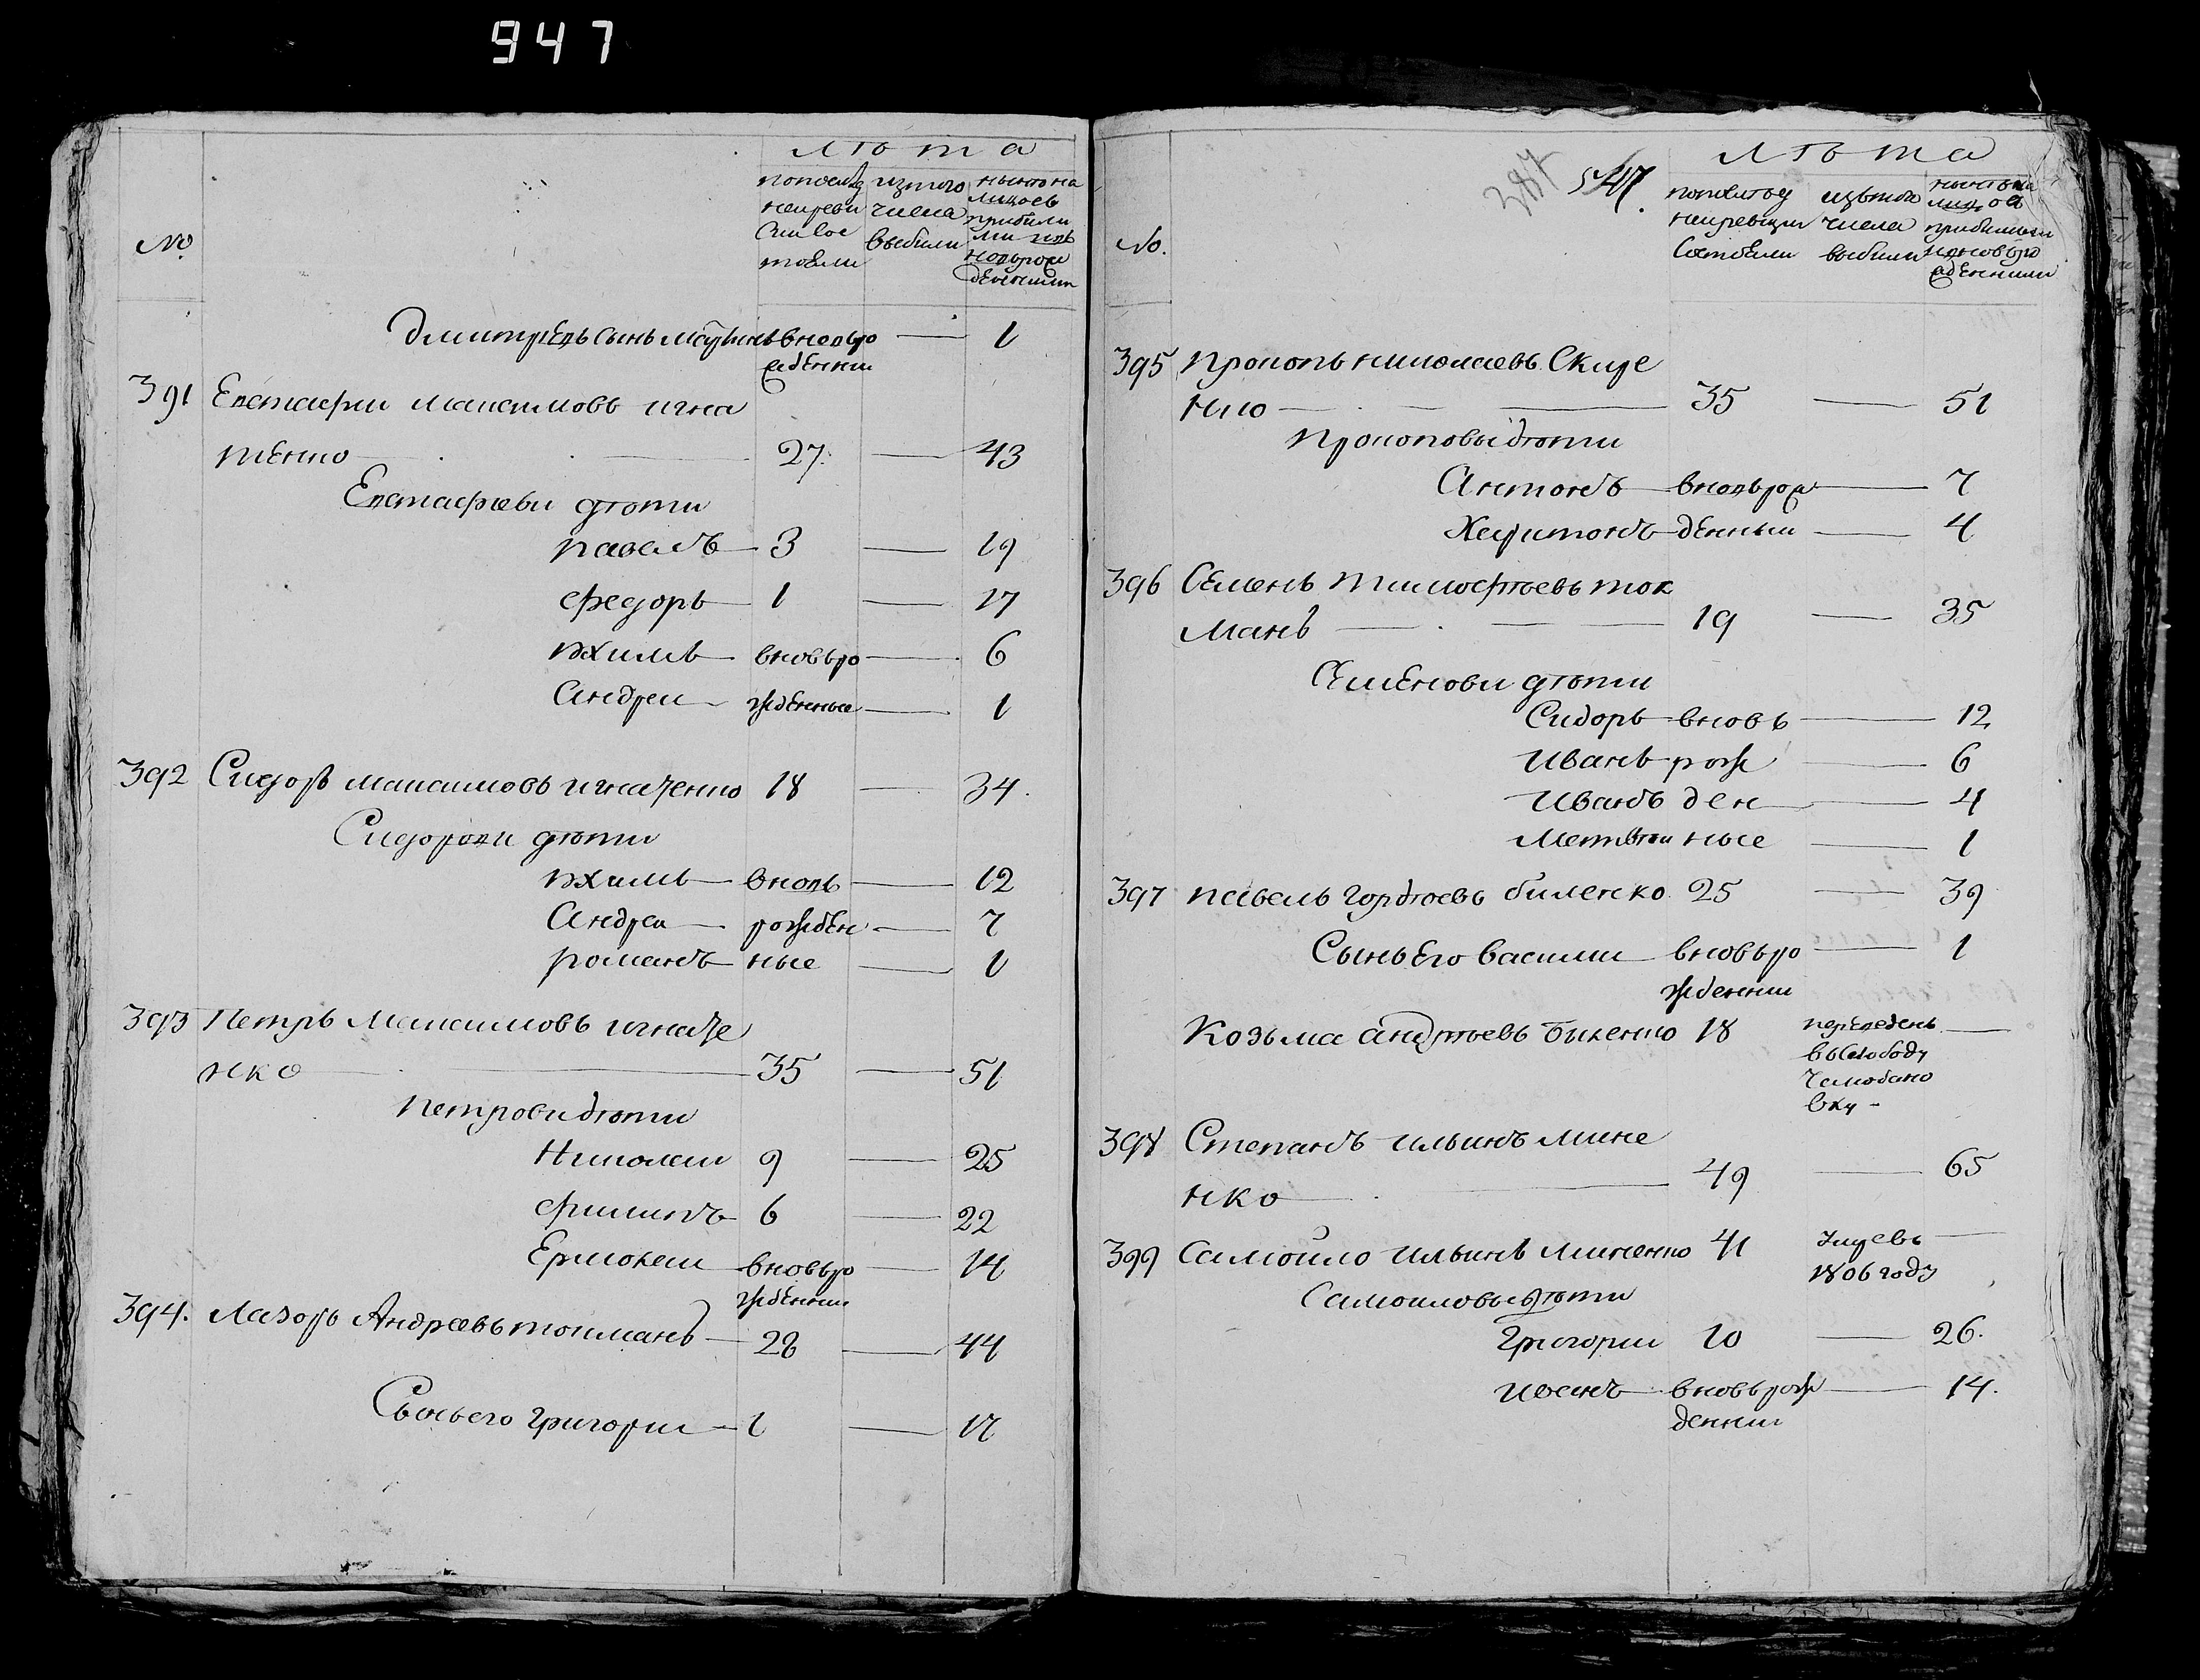 947
Лѣта
№
попослѣд изтого нынѣ на
неиреви числа лицо съ
сіи сос выбыли прибыли
тояли ми изъ
новорож
денними
Дмитріевъ сынъ Мартинъ вновьро — 1
жденни
391 Евстафии Максимовъ игна
тенко — 27. — 43
Евстафиеви дѣти
павелъ — 3 — 19
федоръ — 1 — 17
якимъ — вновьро — 6
Андреи — жденные — 1
392 Сидоръ Максимовъ игнатенко 18 — 34.
Сидорови дѣти
якимъ — вновь — 12
Андреи — рожден — 7
романъ — ные — 1
393 Петръ Максимовъ игнате
нко — 35 — 51
петрови дѣти
Николаи 9 — 25
филипъ 6 — 22
Ермолаи — вновьро — 14
жденни
394. Лазоръ Андреевъ токманъ — 28 — 44
Сынъ его григории — 1 — 17
387 547.
Лѣта
№.
попослѣд изътого нынѣ на
неиревизіи числа лицо съ
состояли выбыли прибилыми
изновъро
жденними
395 прокопъ николаевъ Скире
нко — 35 — 51
прокоповы дѣти
Антонъ — вновьрож — 7
Харитонъ — денныи — 4
396 Семенъ тимофѣевъ ток
манъ — 19 — 35
Семенови дѣти
Сидоръ — вновь — 12
Иванъ — рож — 6
Иванъ ден — 4
Матвѣи ные — 1
397 павелъ гордѣевъ биленко 25 — 39
Сынъ Его василии — вновьро — 1
жденни
Козьма андрѣевъ биленко 18 переведенъ —
въ Слободу
Чамобано
вку -
398 Степанъ ильинъ мине
нко — 49 — 65
399 Самойло ильинъ миненко 41 умревъ —
1806 году
Самоиловы дѣти
Григории 10 — 26.
иванъ — вновьрож — 14.
денни